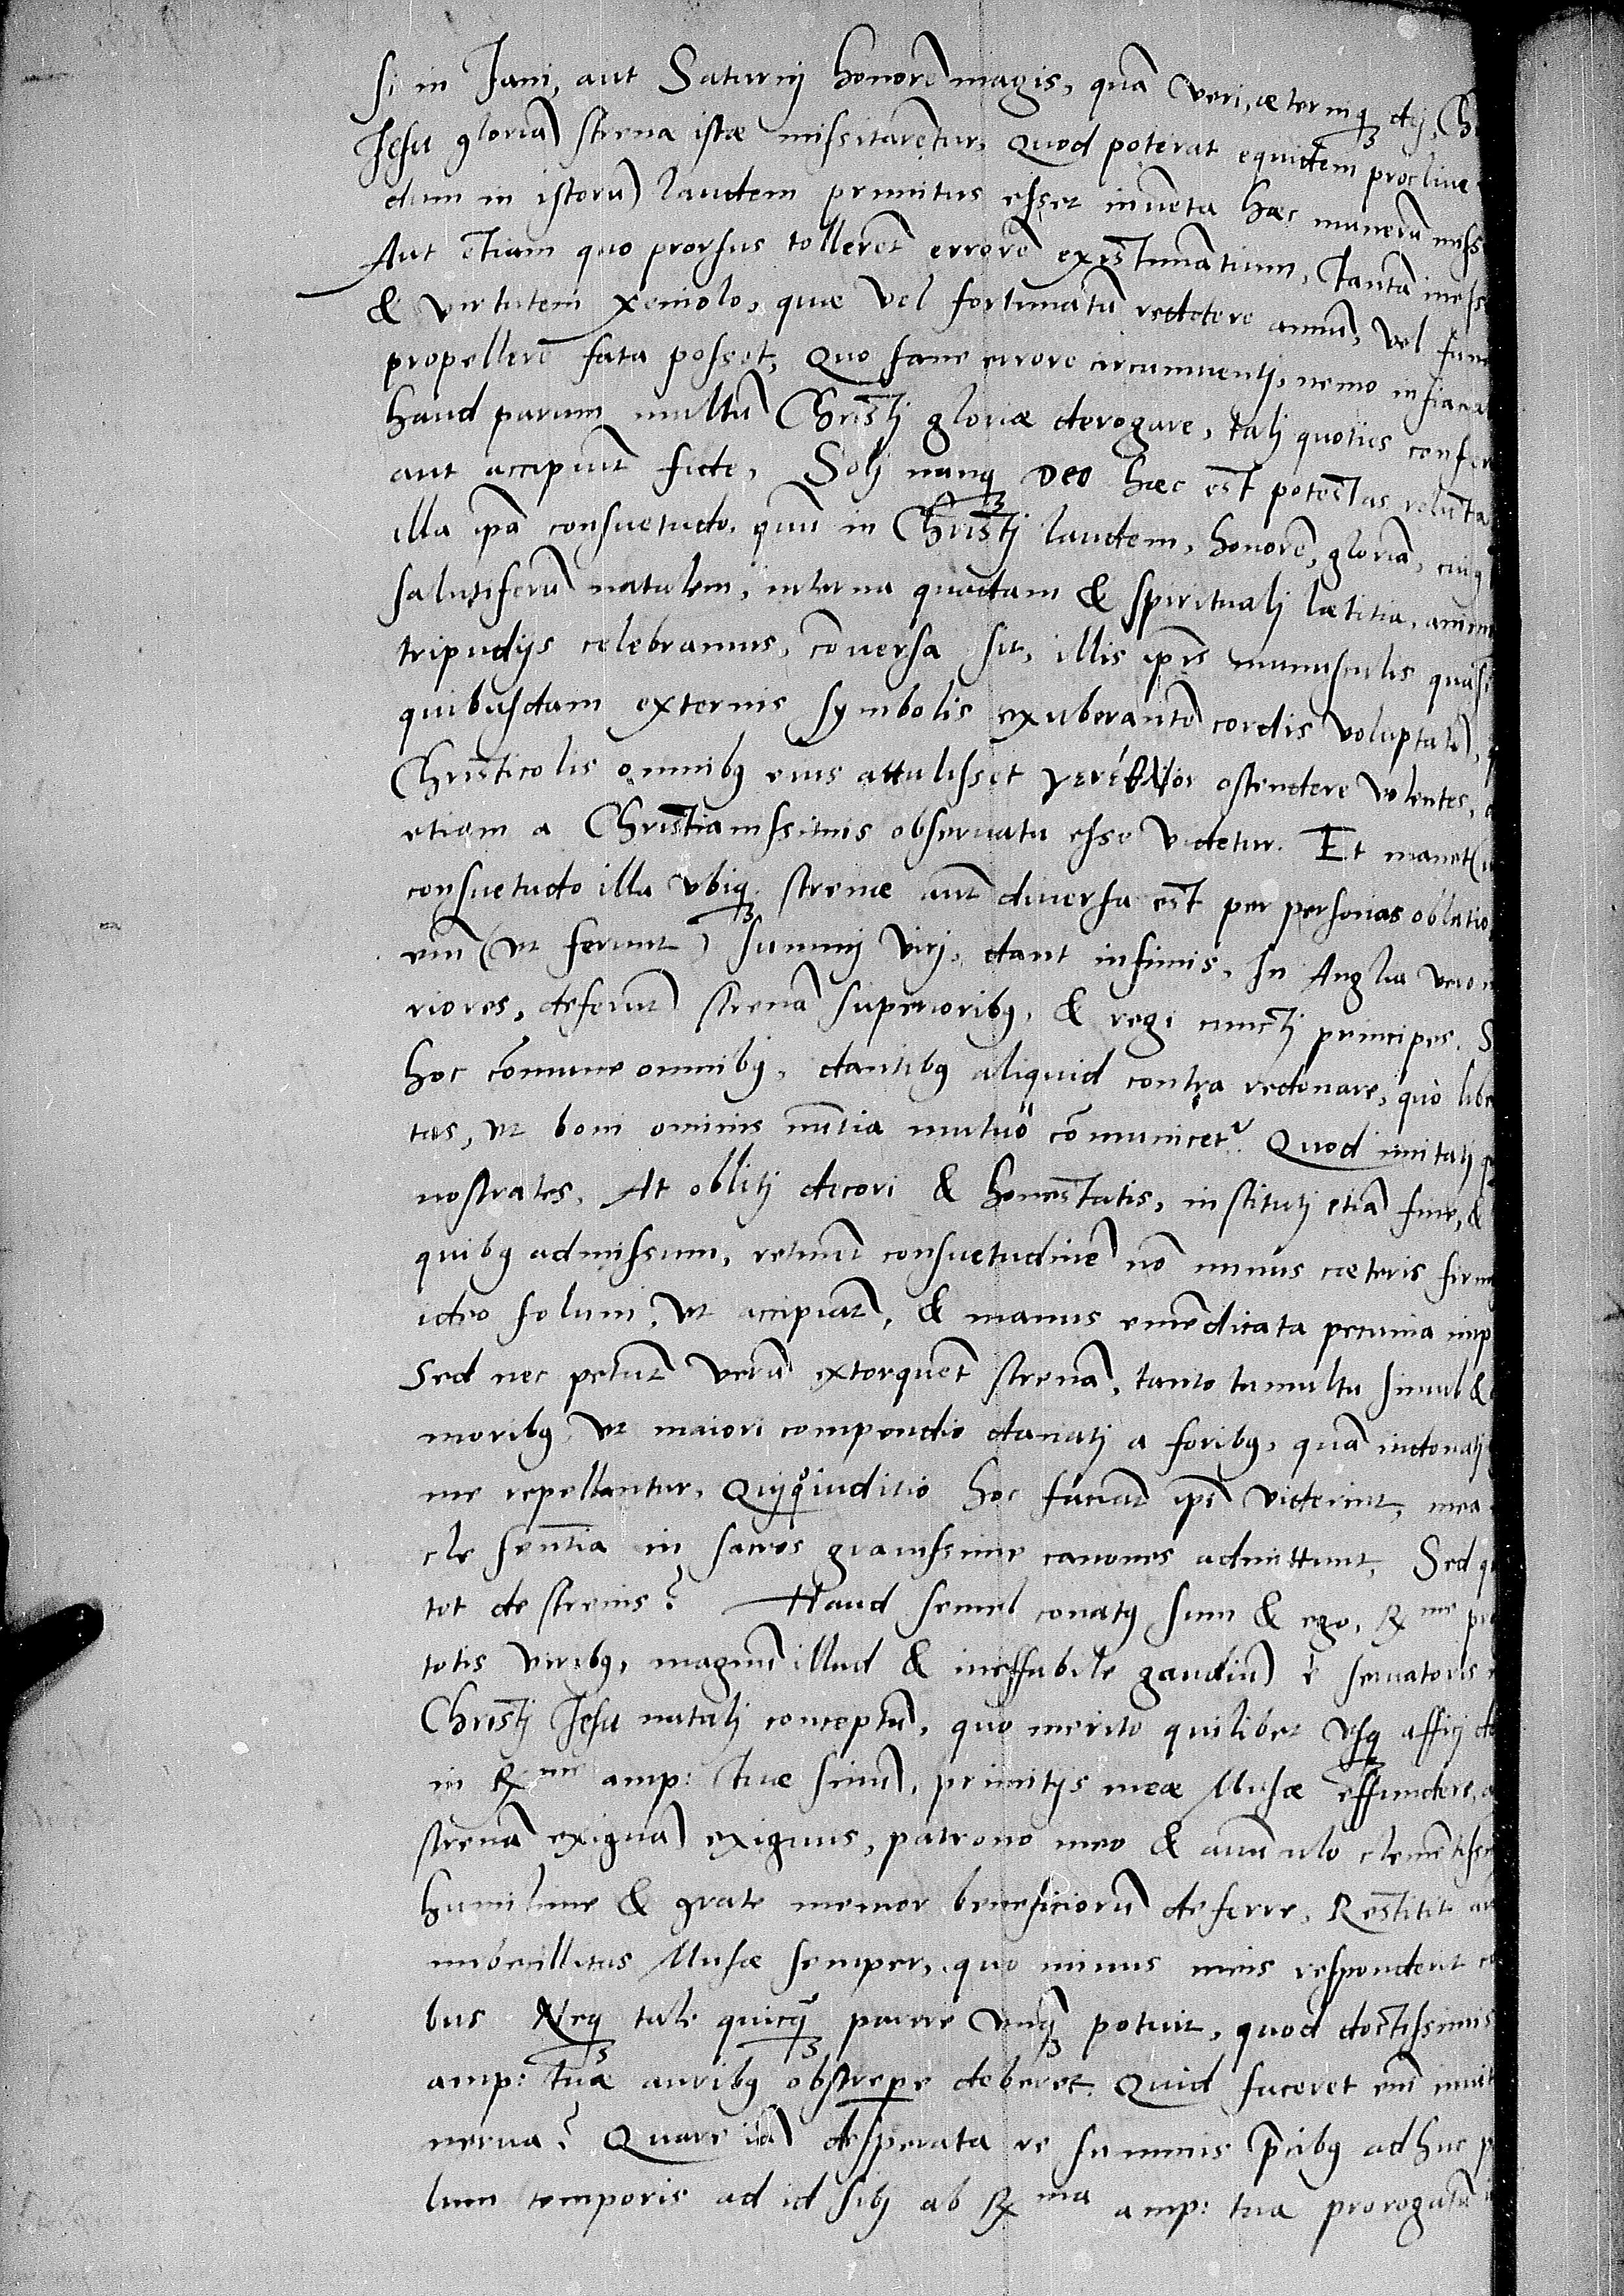 si in Jani, aut Saturnj honorē magis, quā veri, æterniq̢ dej, 
Jesu gloriā strenæ istæ missitarētur, Quod poterat equidem procliue
dum in istorū laudem primitus esset inuēta hæc munerū miss
Aut etiam quo prorsus tolleret errorē existimātium, Tantā iness
& virtutem xeniolo, quæ vel fortunatū reddere annū, vel fun
propellere fata posset, Quo sane errore circumuentj, nemo inficia
haud parum multū Christj gloriæ derogare, talj quoties confer
aut accipiūt fide, Solj nanq̢ DEO hæc est potestas 
illa ipā consuetudo, quū in Christj laudem, honorē, gloriā, cuiq
salutiferū natalem, interna quadam & spiritualj lætitia, anim
tripudijs celebramus, cōuersa sit, illis ipīs munusculis quasi
quibusdam externis symbolis exuberantē cordis voluptatē,
Christicolis omnibꝯ eius attulisset γενέθλιον ostendere volentes,
etiam a Christianissimis obseruata esse videtur. Et manet
consuetudo illa vbiq̢ strenæ aūt diuersa est per personas oblatio
rūm (vt ferunt) summj virj, dant infimis, In Anglia vero
riores, deferūt strenā superioribꝯ, & regi cunctj principes. S
hoc cōmune omnibꝯ, dantibꝯ aliquid contra redonare, quò libe
tas, vt boni ominis nūtia mutuò cōmunicet.᷑ Quod imitatj
nostrates, At oblitj decori & honestatis, institutj etiā fine, &
quibꝯ admissum, retinūt consuetudinē nō minus cæteris firm
ideo solum, vt accipiāt, & manus emēdicata pecunia imp
Sed nec petūt verū extorquēt strenā, tanto tumultu simul &
moribꝯ, vt maiori compendio danatj a foribꝯ, quā indonatj
me repellantur, iuditio hoc faciāt ipī viderint, mea
cle sentētia in sacros grauissime canones admittunt, Sed q
tot de strenis? Haud semel conatꝯ sum & ego, R me pr
totis viribꝯ, magnū illud & ineffabile gaudiū è seruatoris
Christj Jesu natalj conceptū, quo merito quilibet vsq̢ affici de
in R me amp: tuæ sinū, primitijs meæ Musæ effundere,
strenā exiguā exiguus, patrono meo & auūculo clemētiss
humilime & grate memor beneficiorū deferre, Restitit a
imbecillitas Musæ semper, quo minus meis responderit
bus Neq̢ tale quicq̢ parere vnq̢ potuit, quod doctissimis
amp: tuæ auribꝯ obstrepe deberet. Quid faceret enī inuit
nerua? Quare iā desperata re summis p̄cibꝯ adhuc p
lum temporis ad id sibj ab R ma amp: tua prorogatū